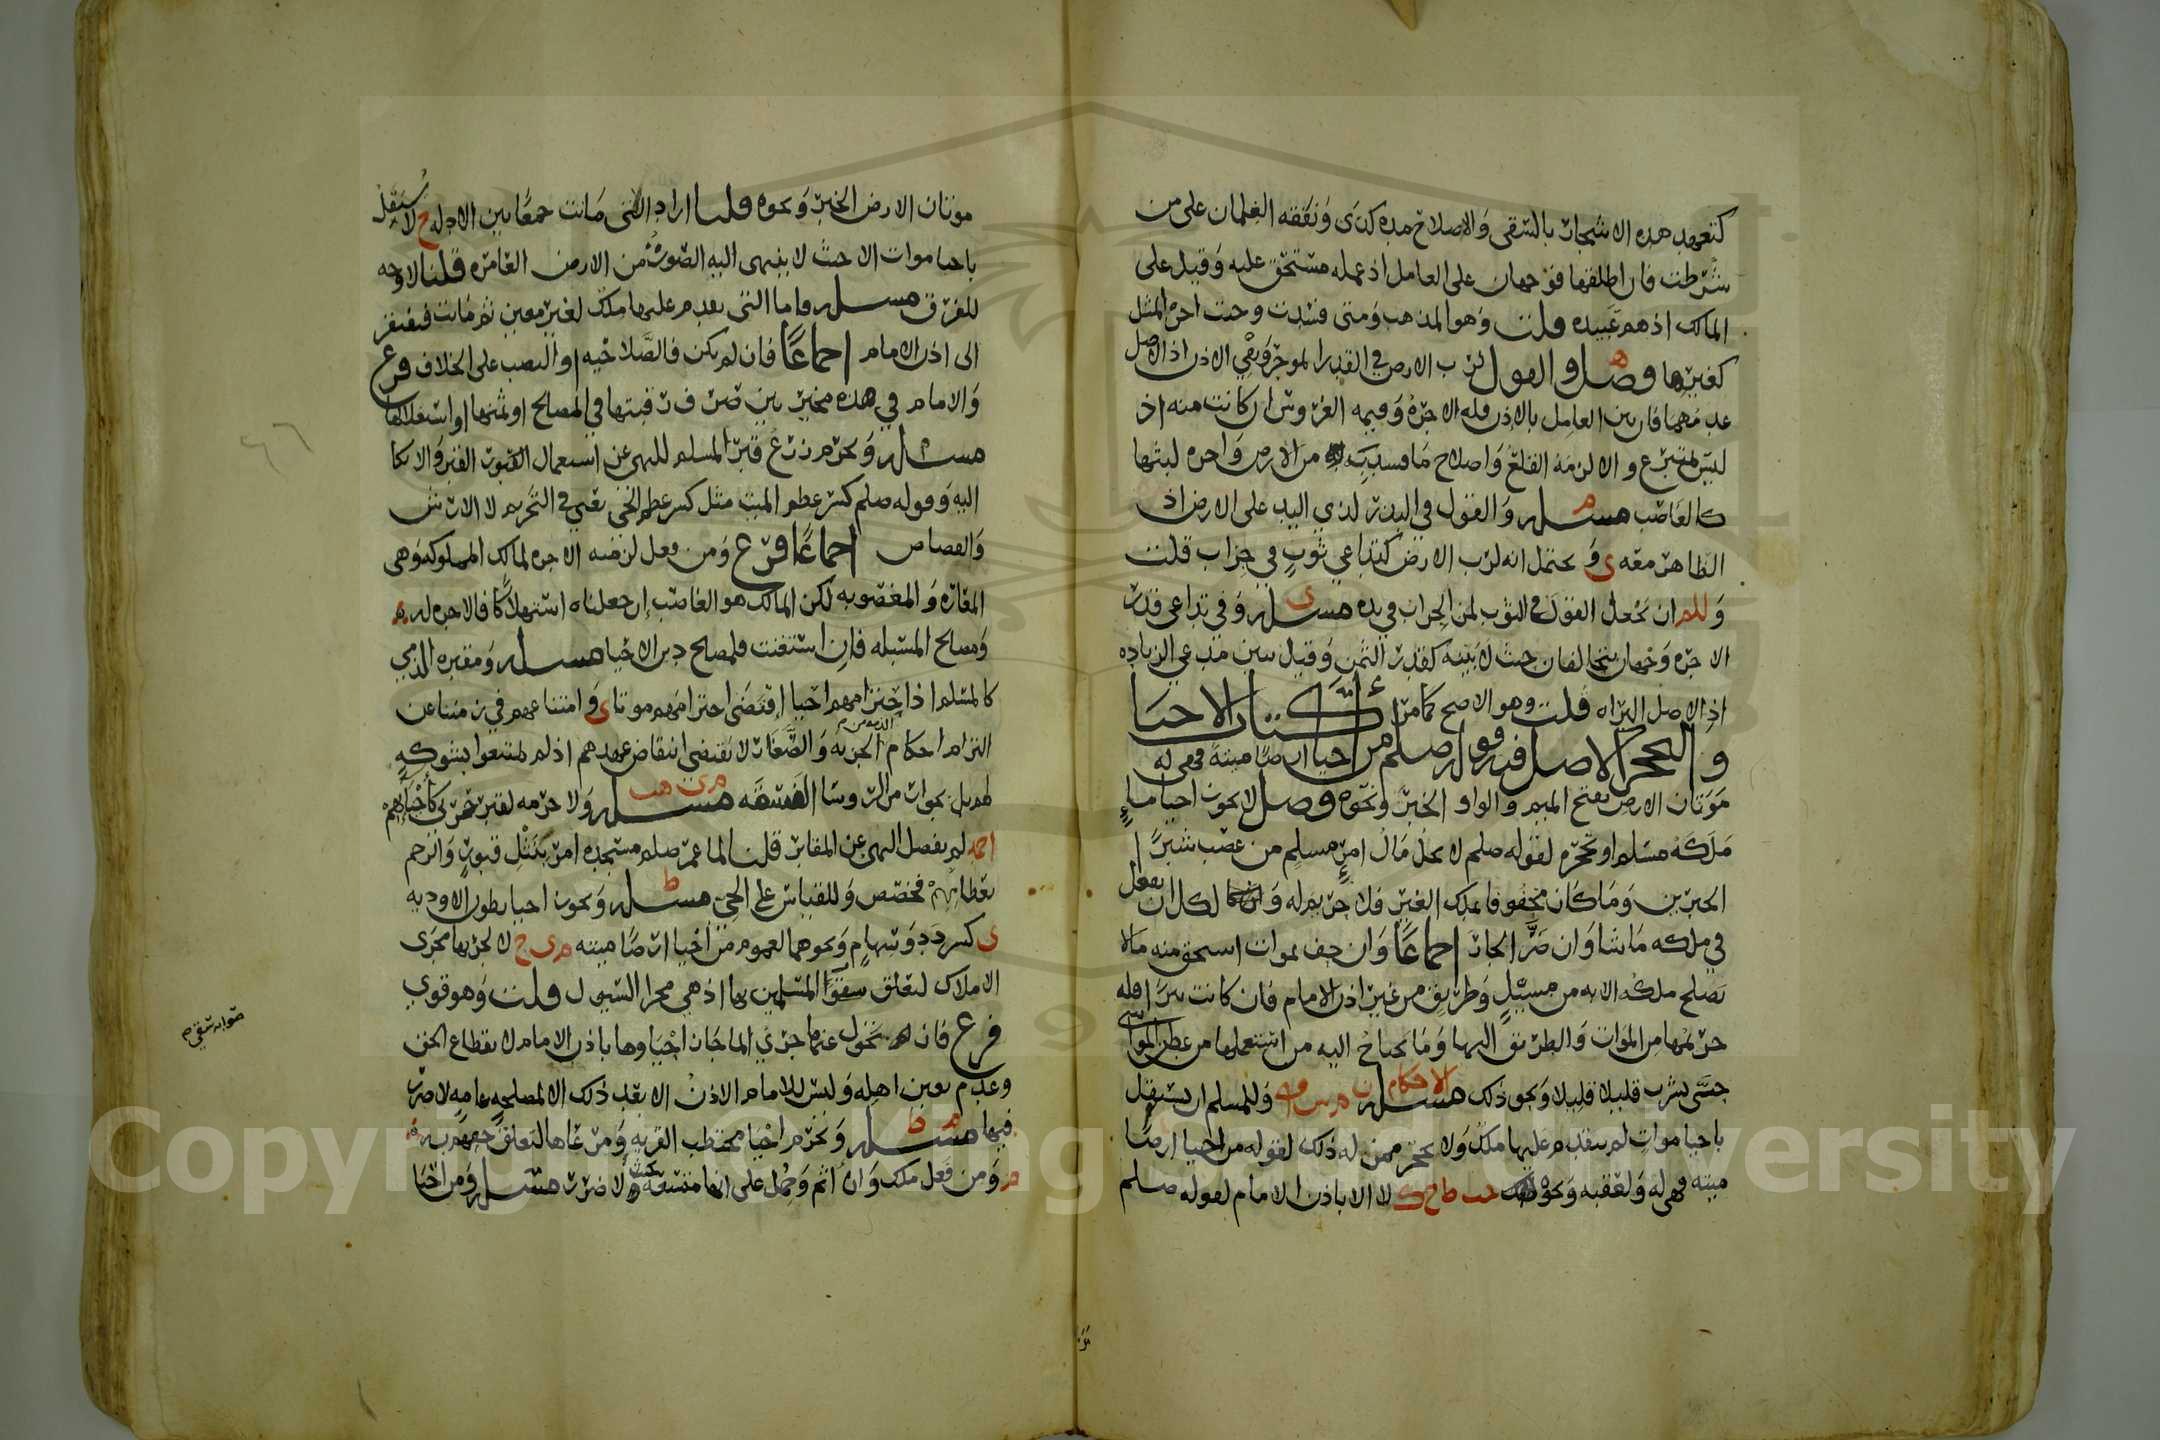 كتعهد هذه الاشجار بالسقي والاصلاح مدة كذى ونفقه الغلمان على من
شرطت فان اطلقها فوجهان على العامل اذ عمله مستحق عليه وقيل على
المالك اذ هم عبيده قلت وهو المذهب ومتى فسدت وجبت اجرة المثل
كغيرها فصل والقول لرب الارض في القدر الموجر ونفي الاذن اذ الاصل
عدمهما فان بين العامل بالاذن فله الاجرة وقيمه الغروس ان كانت منه اذ
ليس بمتبرع والا لزمه القلع واصلاح ما فسد من الارض واجرة لبثها
كالغاصب مسله والقول في البذر لذي اليد على الارض اذ
الظاهر معه ى ويحتمل انه لرب الارض كتداعي ثوب في جراب قلت
ولله ان نجعل القول في الثوب لمن الجراب في يده مسله وفي تداعي قدر
الاجرة وجهان يتحالفان حيث لا بينه كقدر الثمن وقيل يبين مدعي الزياده
اذ الاصل البراه قلت وهو الاصح كما مر كتاب الاحيا
والتحجر الاصل فيه قوله صلم من احيا ارضا ميتة فهي له
موتان الارض بفتح الميم والواو الخبر ونحوه فصل لا يجوز احيا ما
ملكه مسلم او تحجره لقوله صلم لا يحل مال امرء مسلم من غصب شبرا
الخبرين وما كان محفوفا بملك الغير فلا حريم له وانما لكل ان يفعل
في ملكه ما شا وان ضر الجار اجماعا وان حف بموات استحق منه ما لا
يصلح ملكه الا به من مسيل وطريق من غير اذن الامام فان كانت بيرا فله
حريمها من الموات والطريق اليها وما يحتاج اليه من استعملها من عطن المواشي
حتى يشرب قليلا قليلا ونحو ذلك مسله الاحكام وللمسلم ان يستقل
باحيا موات لم يتقدم عليها ملك ولا تحجر ممن له ذلك لقوله من احيا ارضا
ميته فهي له ولعقبه ونحوه حب ط ح ك لا الا باذن الامام لقوله صلم
موتان الارض الخبر ونحوه قلنا اراد التي ماتت جمعا بين الادله ح لا يستقل
باحيا موات الا حيث لا ينتهى اليه الصوت من الارض العامره قلنا لا وجه
للفرق مسله واما التي تقدم عليها ملك لغير معين ثم ماتت فيفتقر
الى اذن الامام اجماعا فان لم يكن فالصلاحيه او النصب على الخلاف فرع
والامام في هذه مخير بين صرف رقبتها في المصالح او ثمنها او استغلالها
مسله ويحرم زرع قبر المسلم للنهي عن استعمال القبور الخبر والاتكا
اليه وقوله صلم كسر عظم الميت مثل كسر عظم الحي يعني في التحريم لا الارش
والقصاص اجماعا فرع ومن فعل لزمته الاجرة لمالك المملوكه وهي
المعاره والمغصوبه لكن المالك هو الغاصب ان جعلناه استهلاكا فالاجره له
ومصالح المسبله فان استغنت فلمصالح دين الاحيا مسله ومقبرة الذمي
كالمسلم اذ احترامهم احيا اقتضى احترامهم موتا ى وامتناعهم في زمننا عن
التزام احكام الجزيه والصغار لا يقتضي انتقاض عهدهم اذ لم يمتنعوا بشوكه
لهم بل بجوار من الروسا الفسقه مسله ولا حرمه لقبر حربي كاحيائهم
احمد لم يفصل النهي عن المقابر قلنا لما عمر صلم مسجده امر بنثل قبور وازحم
بعظامهم فخصص وللقياس على الحي مسله ويجوز احيا بطون الاوديه
ى كسردد وسهام ونحوهما لعموم من احيا ارضا ميته م ى ح لا لجريها مجرى
الاملاك لتعلق سقي المسلمين بها اذ هي مجرا السيول قلت وهو قوي
فرع فان تحول عنها جري الما جاز احياوها باذن الامام لا نقطاع الحق
وعدم تعين اهله وليس للامام الاذن الا بعد ذلك الا لمصلحه عامه لا ضرر
فيها مسله ويحرم احيا محتطب القريه ومرعاها لتعلق حقهم به
م ومن فعل ملك وان اثم وحمل على انها متسعه بحيث لا ضرر مسله ومن احيا
صوابه سقي م